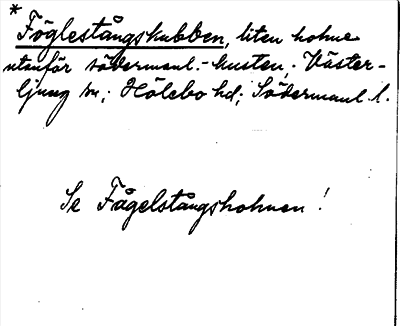 *
Föglestångskubben, liten holme
utanför södermanl.-kusten; Väster-
ljung sn; Hölebo hd; Södermanl. l.
Se Fågelstångsholmen!